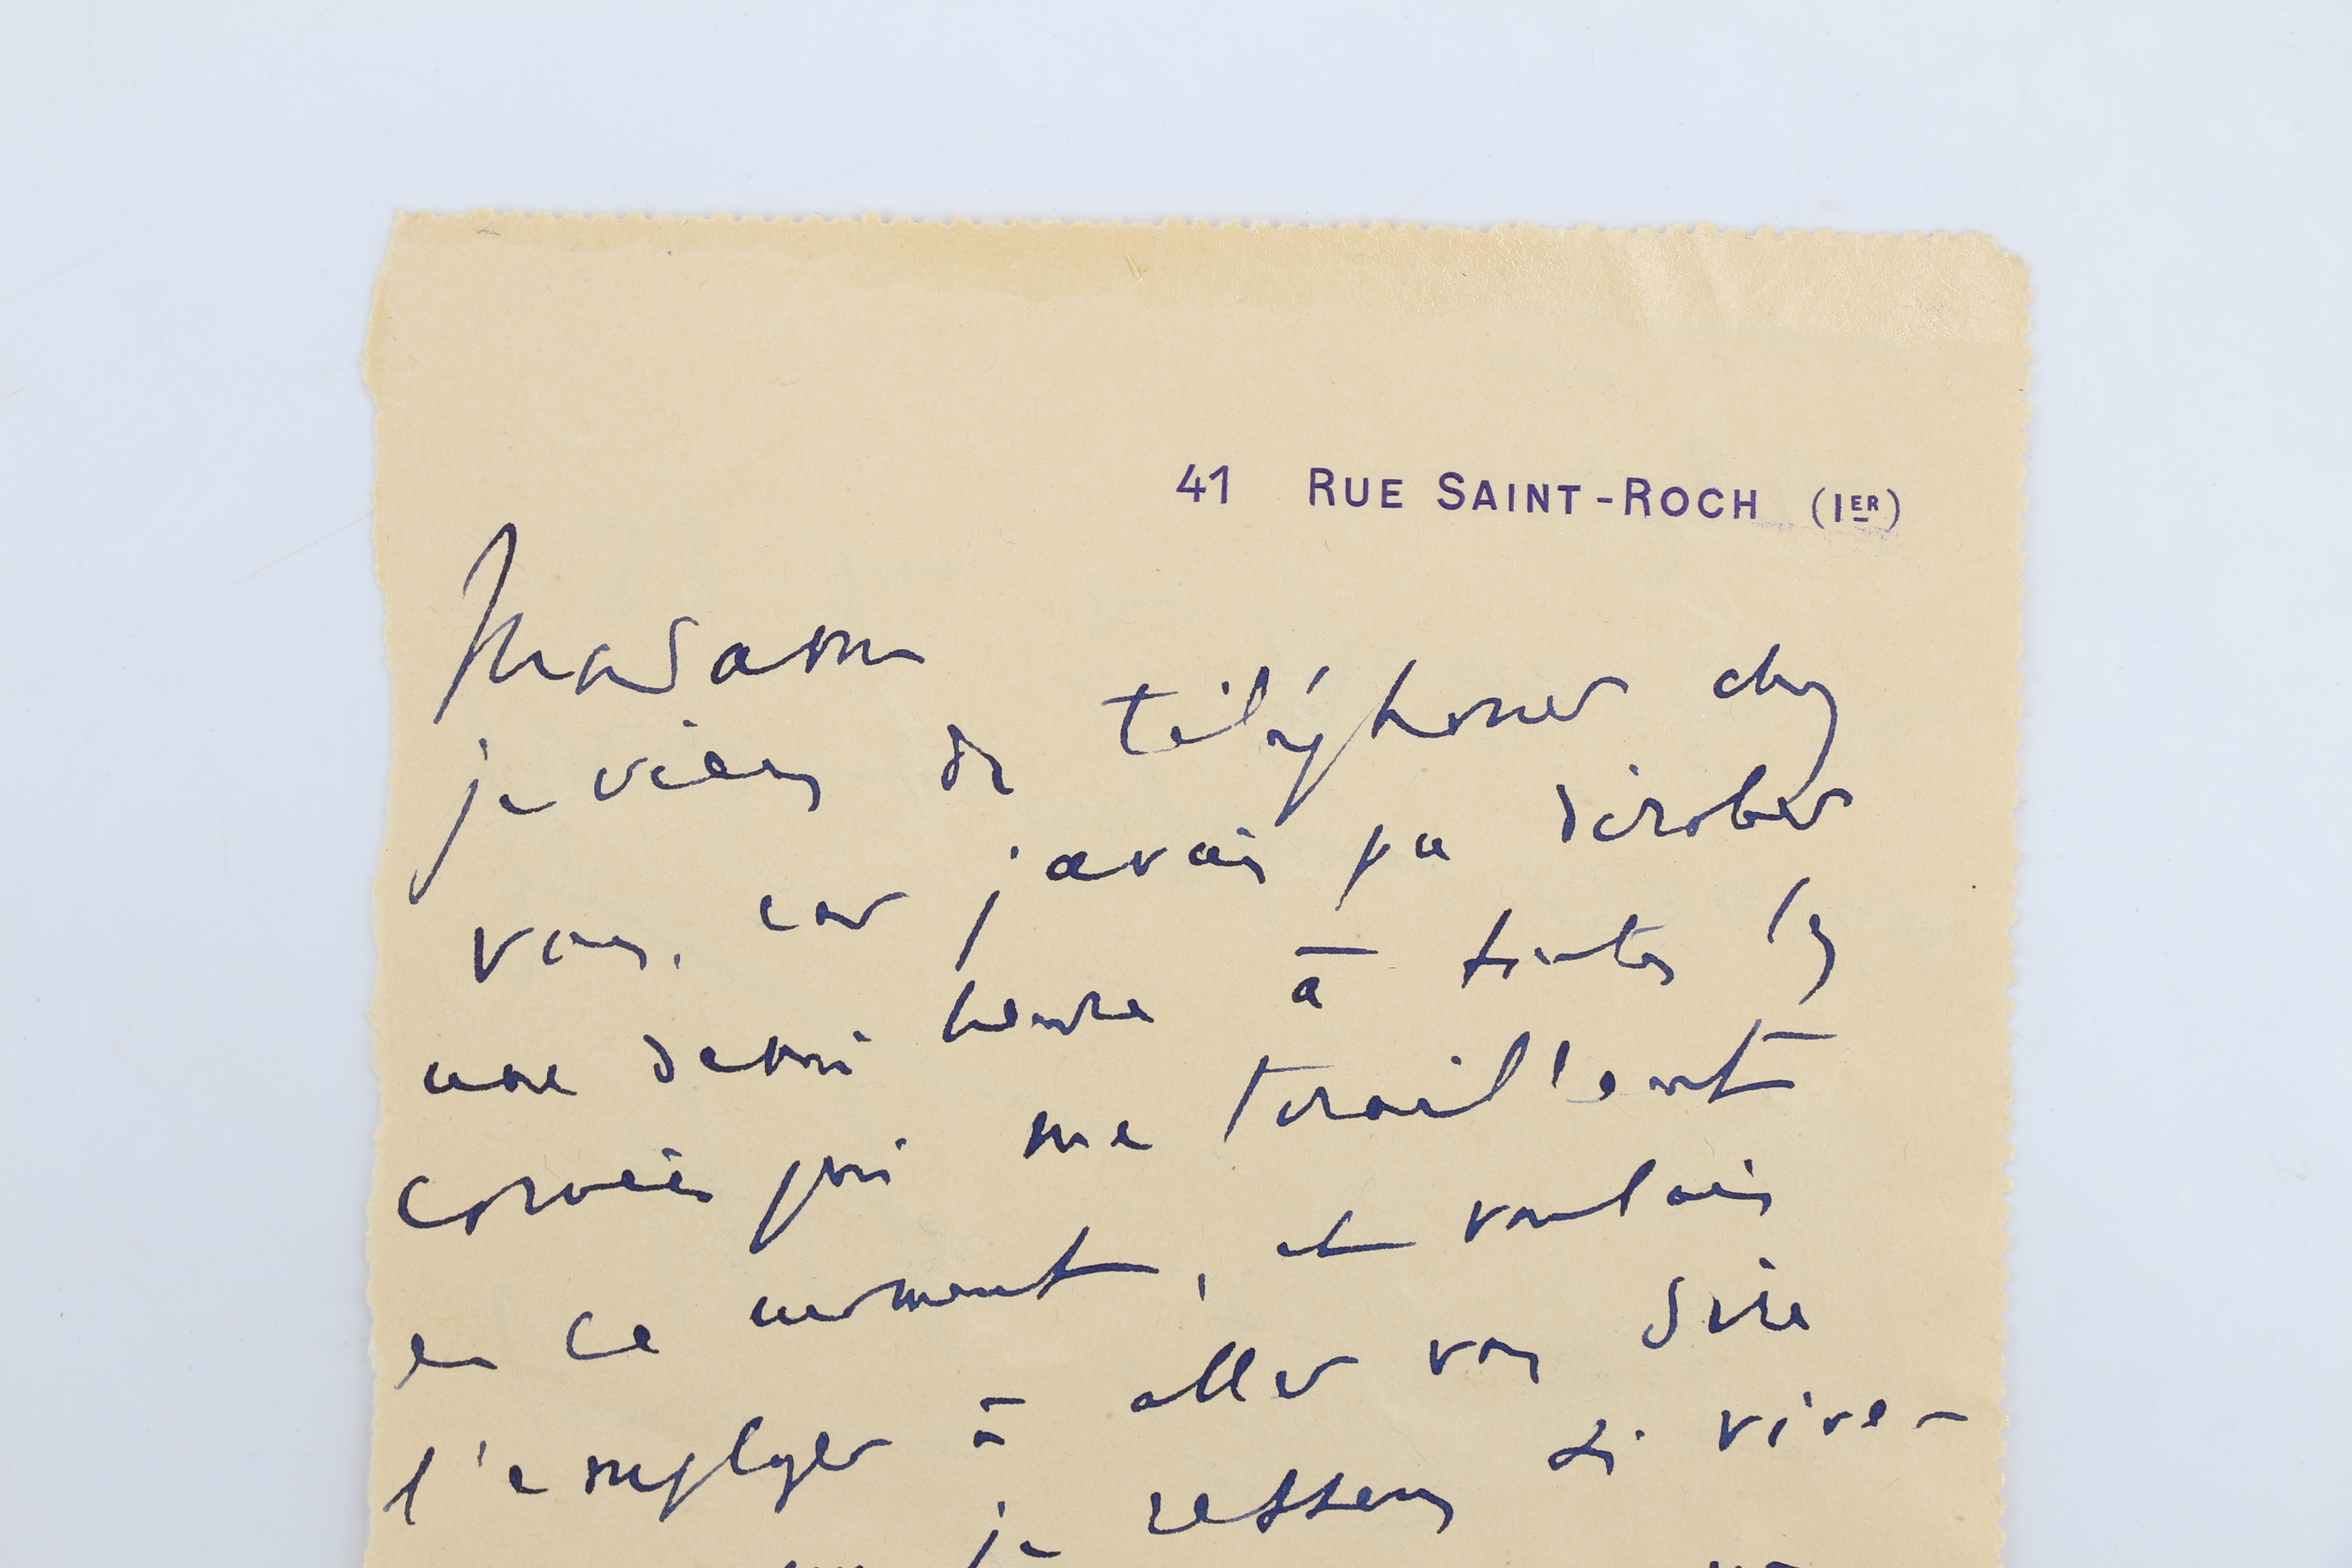 41 RUE SAINT-ROCH (IER)
Madame
je viens de téléphoner chez
vous, car j'avais pu dérober
une demi heure à toutes les
corvées qui me tiraillent
en ce moment, et voulais
l'employer à aller vous dire
je ressens si vive-